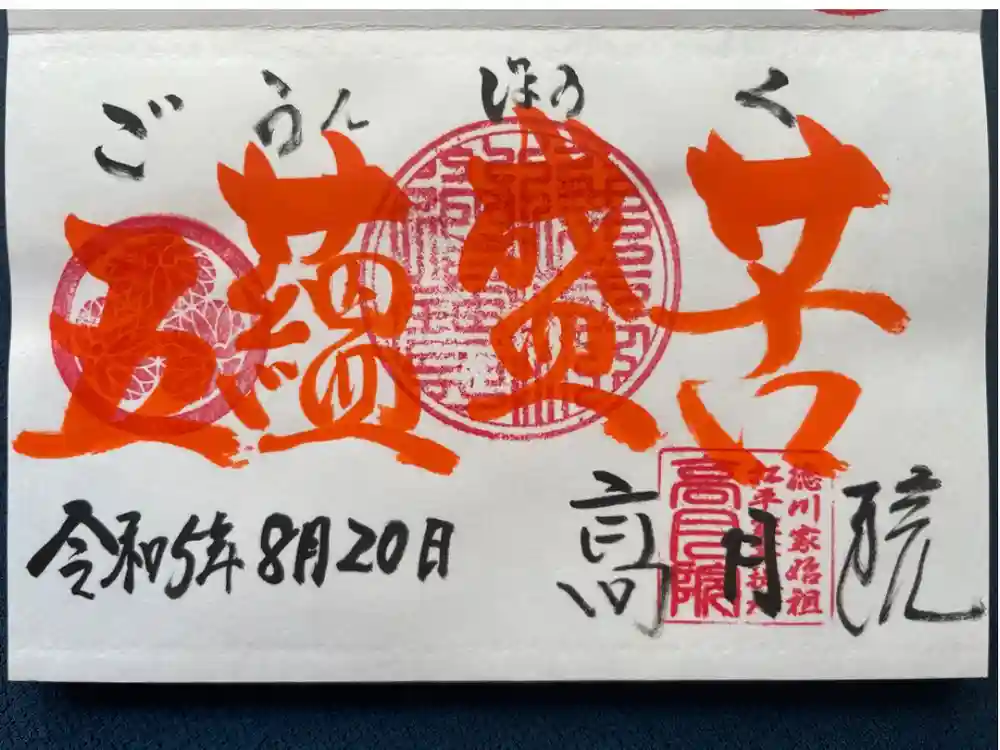 ごうんじょうく
五蘊盛苦
徳川家始祖
高月院
高月院
令和5年8月20日